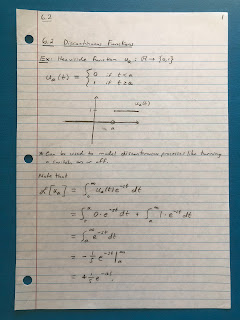 6.2
1
6.2 Discontinuous Functions
Ex: Heaviside Function u_a : ℝ → {0,1}
u_a(t) = { 0 if t < a
1 if t ≥ a
u_a(t)
1
a
* Can be used to model discontinuous processes like turning
a switch on or off.
Note that
ℒ[u_a] = ∫_0^∞ u_a(t) e^{-st} dt
= ∫_0^a 0 · e^{-st} dt + ∫_a^∞ 1 · e^{-st} dt
= ∫_a^∞ e^{-st} dt
= -1/s e^{-st} |_a^∞
= +1/s e^{-as}.